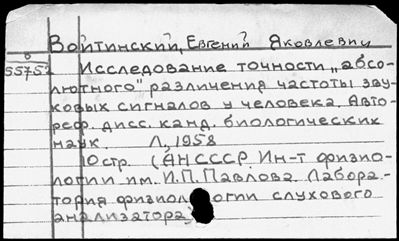 Войтинский, Евгений Яковлевич
0
55752 Исследование точности „абсо-
лютного" различения частоты зву-
ковых сигналов у человека. Авто-
реф. дисс. канд. биологических
наук. Л., 1958
10 стр. (АНСССР. Ин-т физио-
логии им. И.П. Павлова. Лабора-
тория физиологии слухового
анализатора)